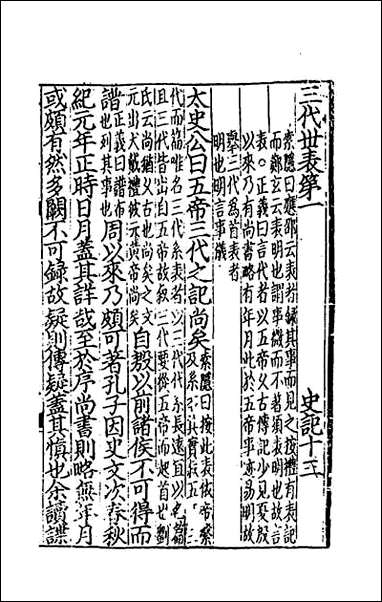 三代世表第一　史記十三
索隱曰應劭云表者錄其事而見之按禮有表記
而鄭玄云表明也謂事微而不著須表明也故言
表。正義曰言代者以五帝久古傳記少見夏殷
以來乃有尚書略有年月比於五帝事亦易明故
舉三代爲首表者
明也明言事儀
太史公曰五帝三代之記尚矣
索隱曰按此表依帝系
及系其實五三
代而篇唯名三代系表者以三代代系長遠宜以名篇
且三代皆出自五帝故叙三代要從五帝而起首也劉
氏云尚猶久古也尚矣之文
元出大戴禮彼云黃帝尚矣
自殷以前諸侯不可得而
譜
正義曰譜布
也列其事也
周以來乃頗可著孔子因史文次春秋
紀元年正時日月蓋其詳哉至於序尚書則略無年月
或頗有然多闕不可錄故疑則傳疑蓋其慎也余讀諜